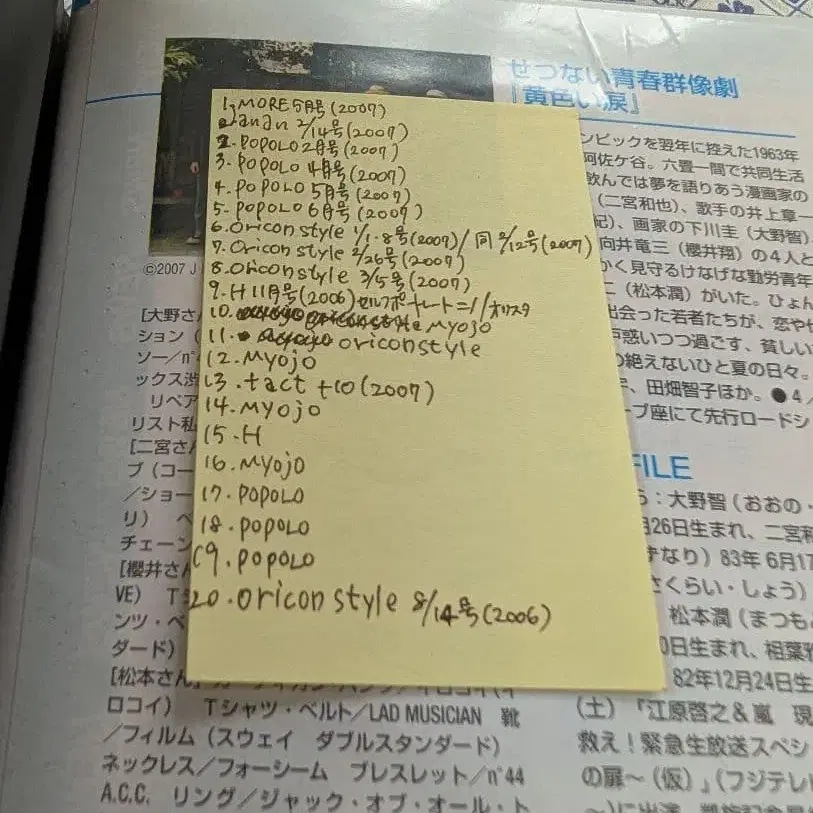 せつない青春群像劇
『黄色い涙』
1. MORE 5月号(2007)
anan 2/14号(2007)
2. POPOLO 2月号(2007)
3. POPOLO 4月号(2007)
4. POPOLO 5月号(2007)
5. POPOLO 6月号(2007)
6. Oricon style 1/1・8号(2007)/同2/12号(2007)
7. Oricon style 2/26号(2007)
8. Oricon style 3/5号(2007)
9. H 11月号(2006)セルフポートレート=11オリスタ
10. Myojo
11. oricon style
12. Myojo
13. tact +10(2007)
14. Myojo
15. H
16. Myojo
17. POPOLO
18. POPOLO
19. POPOLO
20. Oricon style 8/14号(2006)
ンピックを翌年に控えた1963年
阿佐ケ谷。六畳一間で共同生活
飲んでは夢を語りあう漫画家の
(二宮和也)、歌手の井上章一
紀)、画家の下川圭(大野智)
向井竜三(櫻井翔)の4人と
かく見守るけなげな勤労青年
二(松本潤)がいた。ひょん
出会った若者たちが、恋や
戸惑いつつ過ごす、貧しい
の絶えないひと夏の日々。
、田畑智子ほか。●4/
ーブ座にて先行ロードシ
FILE
ら:大野智(おおの・
月26日生まれ、二宮和
ずなり)83年6月17
さくらい・しょう)
松本潤(まつも
0日生まれ、相葉雅
82年12月24日生
(土)「江原啓之&嵐 現
救え!緊急生放送スペシ
の扉〜(仮)」(フジテレビ
©2007 J
[大野さん
ション(
ソー/n°4
ックス渋
リペア
リスト私
[二宮さん
ブ(コー
/ショー
リ) ベ
チェーン
[櫻井さん
VE) Tシ
ンツ・ベ
ダード)
[松本さん]
ロコイ) Tシャツ・ベルト/LAD MUSICIAN 靴
/フィルム(スウェイ ダブルスタンダード)
ネックレス/フォーシーム ブレスレット/n°44
A.C.C. リング/ジャック・オブ・オール・ト